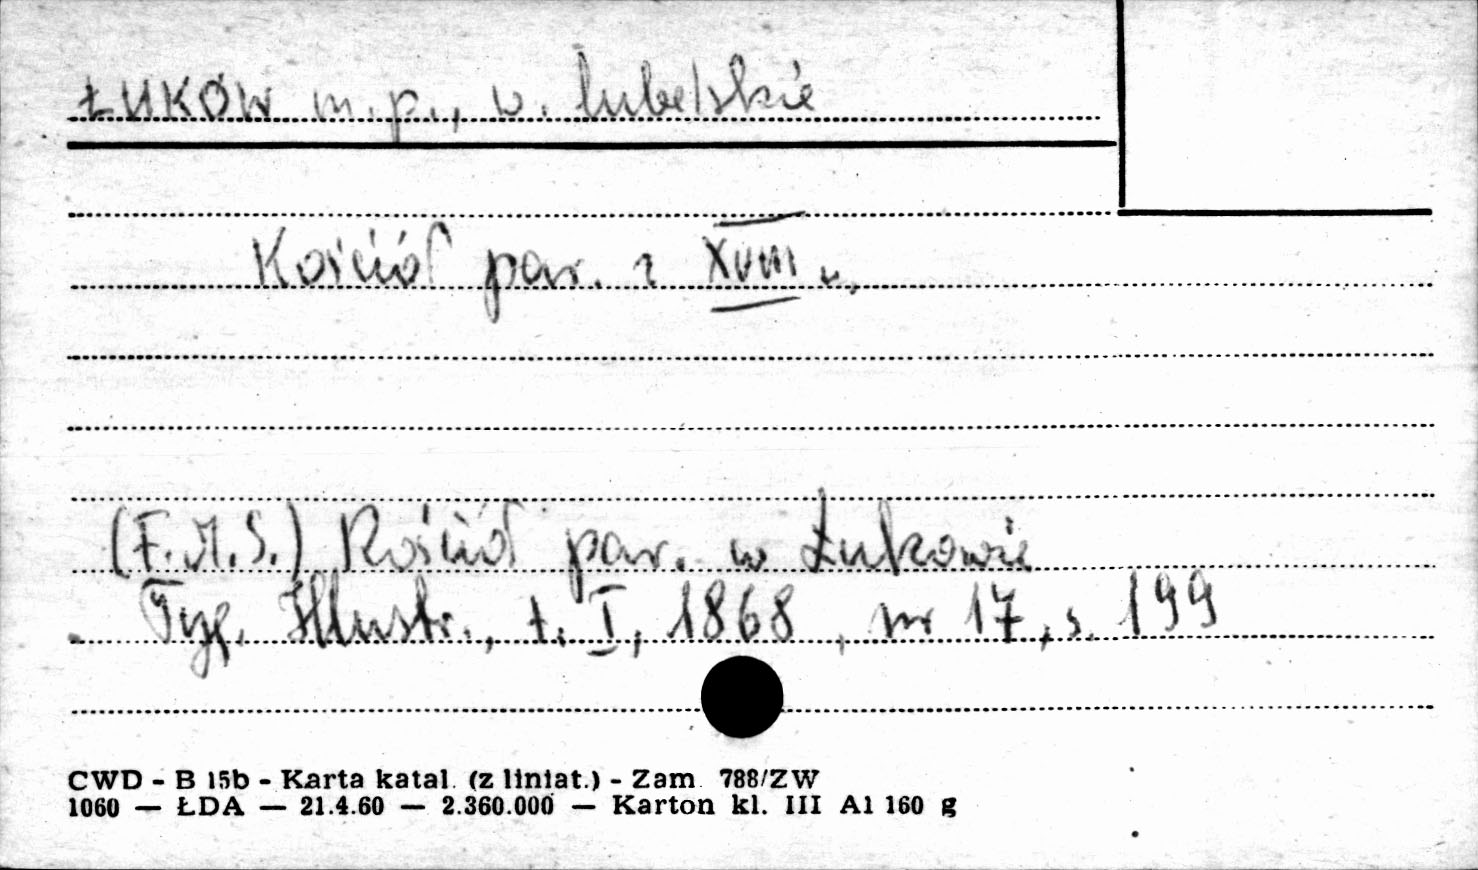 ŁUKÓW m.p., w. lubelskie
Kościół par. z XVIII w.
(F.M.S.) Kościół par. w Łukowie
Tyg. Illustr., t. I, 1868, nr 17, s. 199
CWD - B 15b - Karta katal. (z liniat.) - Zam. 788/ZW
1060 — ŁDA — 21.4.60 — 2.360.000 — Karton kl. III A1 160 g